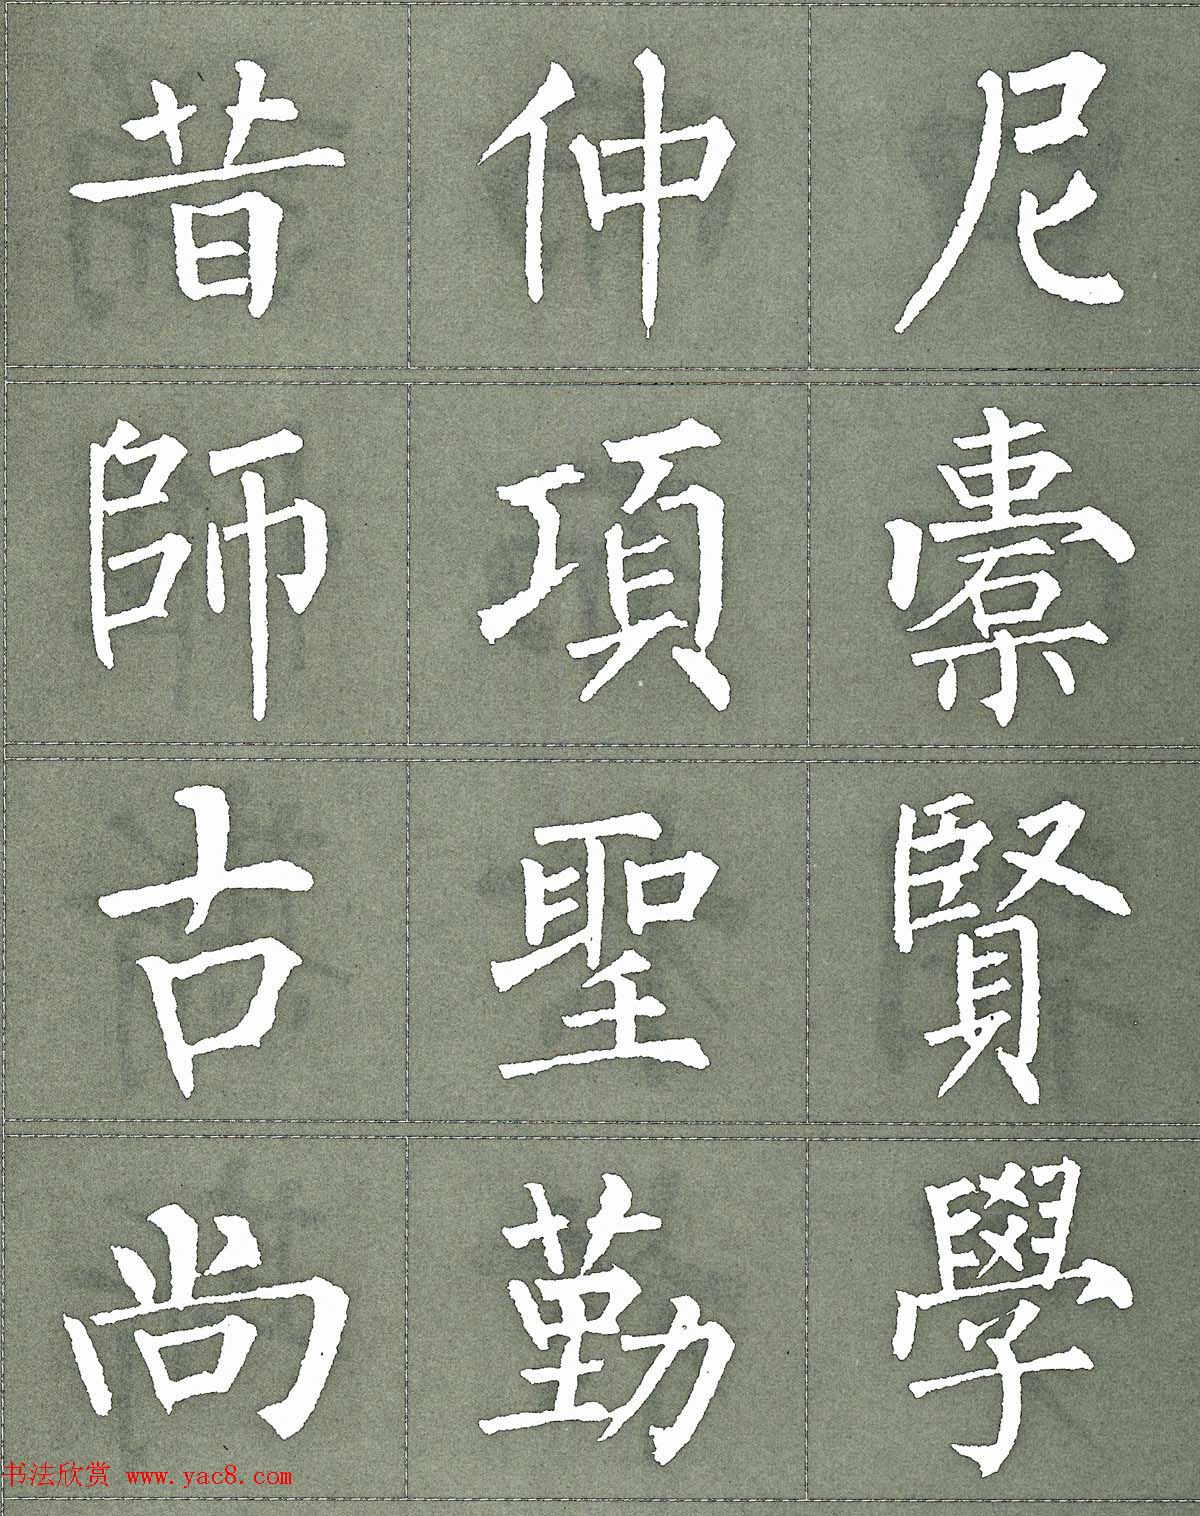 昔仲尼
師項橐
古聖賢
尚勤學
书法欣赏 www.yac8.com